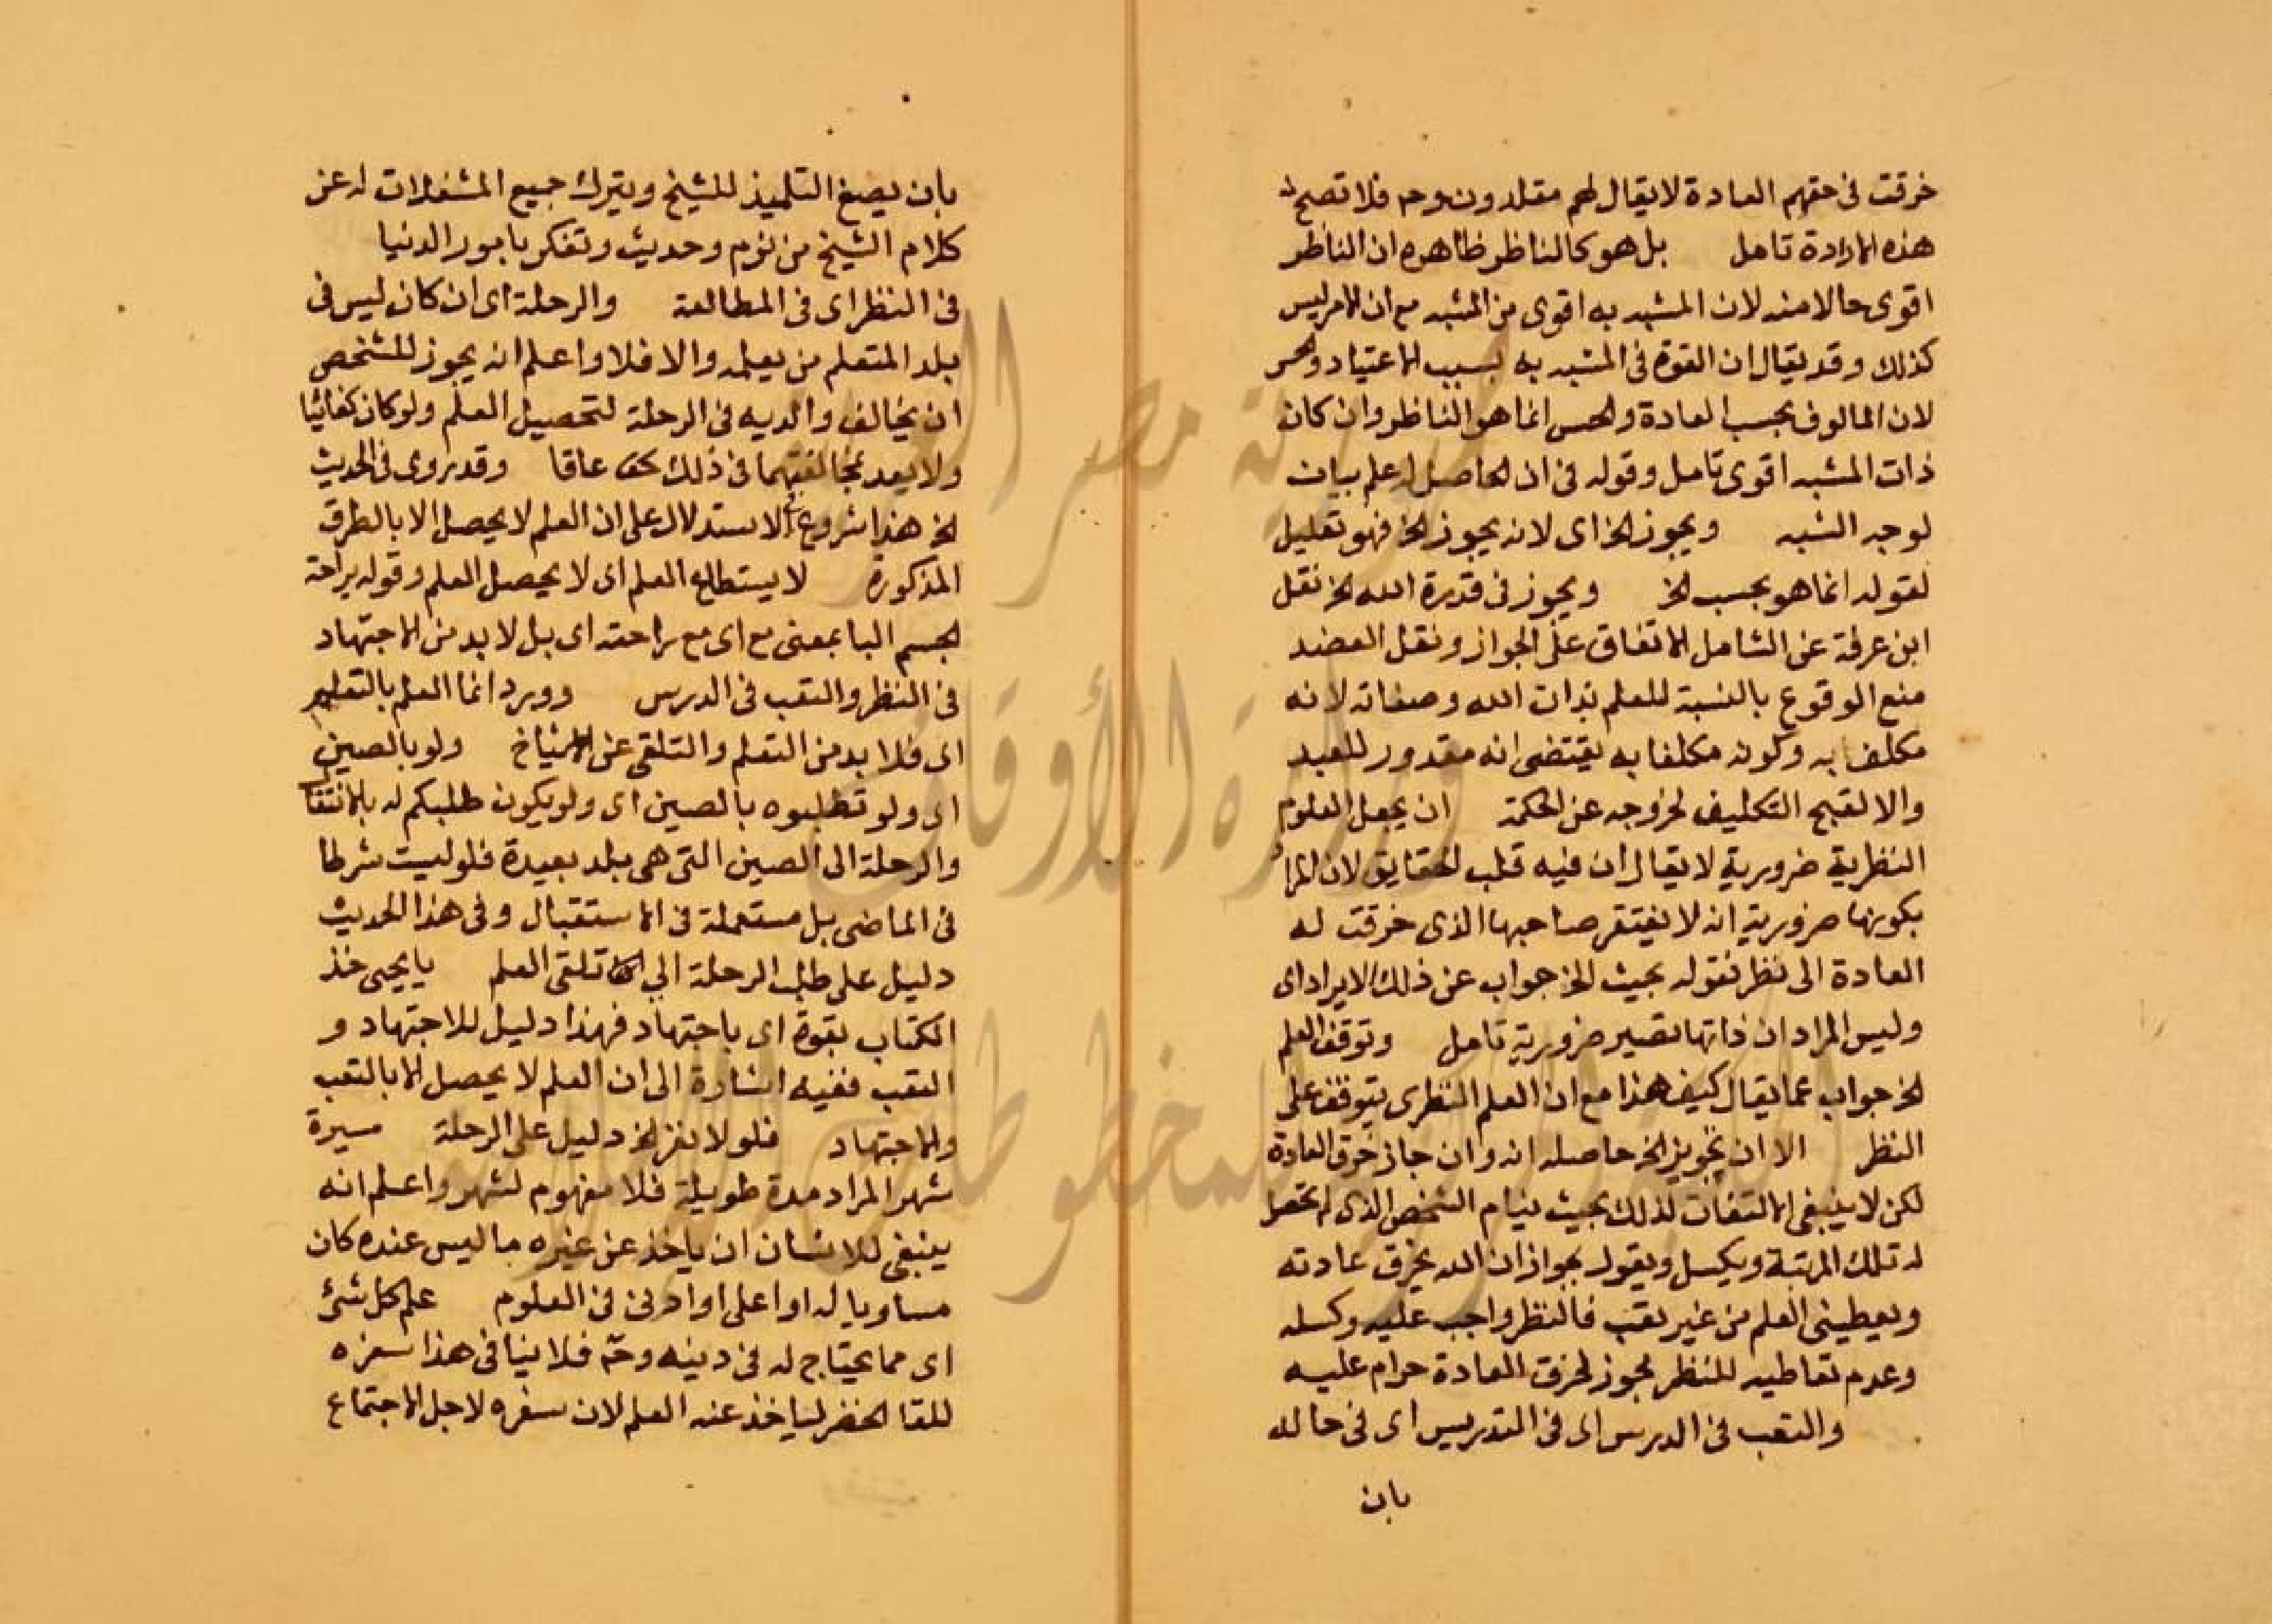 خرقت فى حقهم العادة لا يقال لهم مقلدون وح فلا تصح له
هذه الارادة تامل بل هو كالناظر ظاهره ان الناظر
اقوى حالا منه لان المشبه به اقوى من المشبه مع ان الامر ليس
كذلك وقد يقال ان القوة فى المشبه به بسبب الاعتياد والحس
لان المالوف بحسب العادة والحس انما هو الناظر وان كان
ذات المشبه اقوى تامل وقوله فى ان الحاصل له علم بيان
لوجه الشبه ويجوز الخ اى لانه يجوز الخ فهو تعليل
لقوله انما هو بحسب الخ ويجوز فى قدرة الله الخ نقل
ابن عرفة عن الشامل الاتفاق على الجواز ونقل العضد
منع الوقوع بالنسبة للعلم بذات الله وصفاته لانه
مكلف به وكونه مكلفا به يقتضى انه مقدور للعبد
والا لقبح التكليف لخروجه عن الحكمة ان يجعل العلوم
النظرية ضرورية لا يقال ان فيه قلب الحقايق لان المراد
بكونها ضرورية انه لا يفتقر صاحبها الذى خرقت له
العادة الى نظر فقوله بحيث الخ جواب عن ذلك الايراد اى
وليس المراد ان ذاتها تصير ضرورية تامل وتوقف العلم
الخ جواب عما يقال كيف هذا مع ان العلم النظرى يتوقف على
النظر الا ان تجويز الخ حاصله انه وان جاز خرق العادة
لكن لا ينبغى الالتفات لذلك بحيث ينام الشخص الذى لم تحصل
له تلك المرتبة ويكسل ويقول بجواز ان الله يخرق عادته
ويعطينى العلم من غير تعب فالنظر واجب عليه وكسله
وعدم تعاطيه للنظر لجوز لخرق العادة حرام عليه
والتعب فى الدرس اى فى التدريس اى فى حالة
بان
بان يصغ التلميذ للشيخ ويترك جميع المشغلات له عن
كلام الشيخ من نوم وحديث وتفكر بامور الدنيا
فى النظر اى فى المطالعة والرحلة اى ان كان ليس فى
بلد المتعلم من يعلمه والا فلا واعلم انه يجوز للشخص
ان يخالف والديه فى الرحلة لتحصيل العلم ولو كان كفائيا
ولا يعد بمخالفتهما فى ذلك عاقا وقد روى فى الحديث
الخ هذا شروع فى الاستدلال على ان العلم لا يحصل الا بالطرق
المذكورة لا يستطاع العلم اى لا يحصل العلم وقوله براحة
الجسم البا بمعنى مع اى مع راحته اى بل لا بد من الاجتهاد
فى النظر والتعب فى الدرس وورد انما العلم بالتعلم
اى فلا بد من التعلم والتلقى عن الاشياخ ولو بالصين
اى ولو تطلبوه بالصين اى ولو يكون طلبكم له بالانتقا
والرحلة الى الصين التى هى بلد بعيدة فلو ليست شرطا
فى الماضى بل مستعملة فى الاستقبال وفى هذا الحديث
دليل على طلب الرحلة الي تلقى العلم يا يحيى خذ
الكتاب بقوة اى باجتهاد فهذا دليل للاجتهاد و
التعب ففيه اشارة الى ان العلم لا يحصل الا بالتعب
والاجتهاد فلولا نفر الخ دليل على الرحلة مسيرة
شهر المراد مدة طويلة فلا مفهوم لشهر واعلم انه
ينبغى للانسان ان ياخذ عن غيره ما ليس عنده كان
مساويا له او اعلى او ادنى فى العلوم علم كل شئ
اى مما يحتاج له فى دينه وح فلا ينافى هذا سفره
للقا الخضر لياخذ عنه العلم لان سفره لاجل الاجتماع